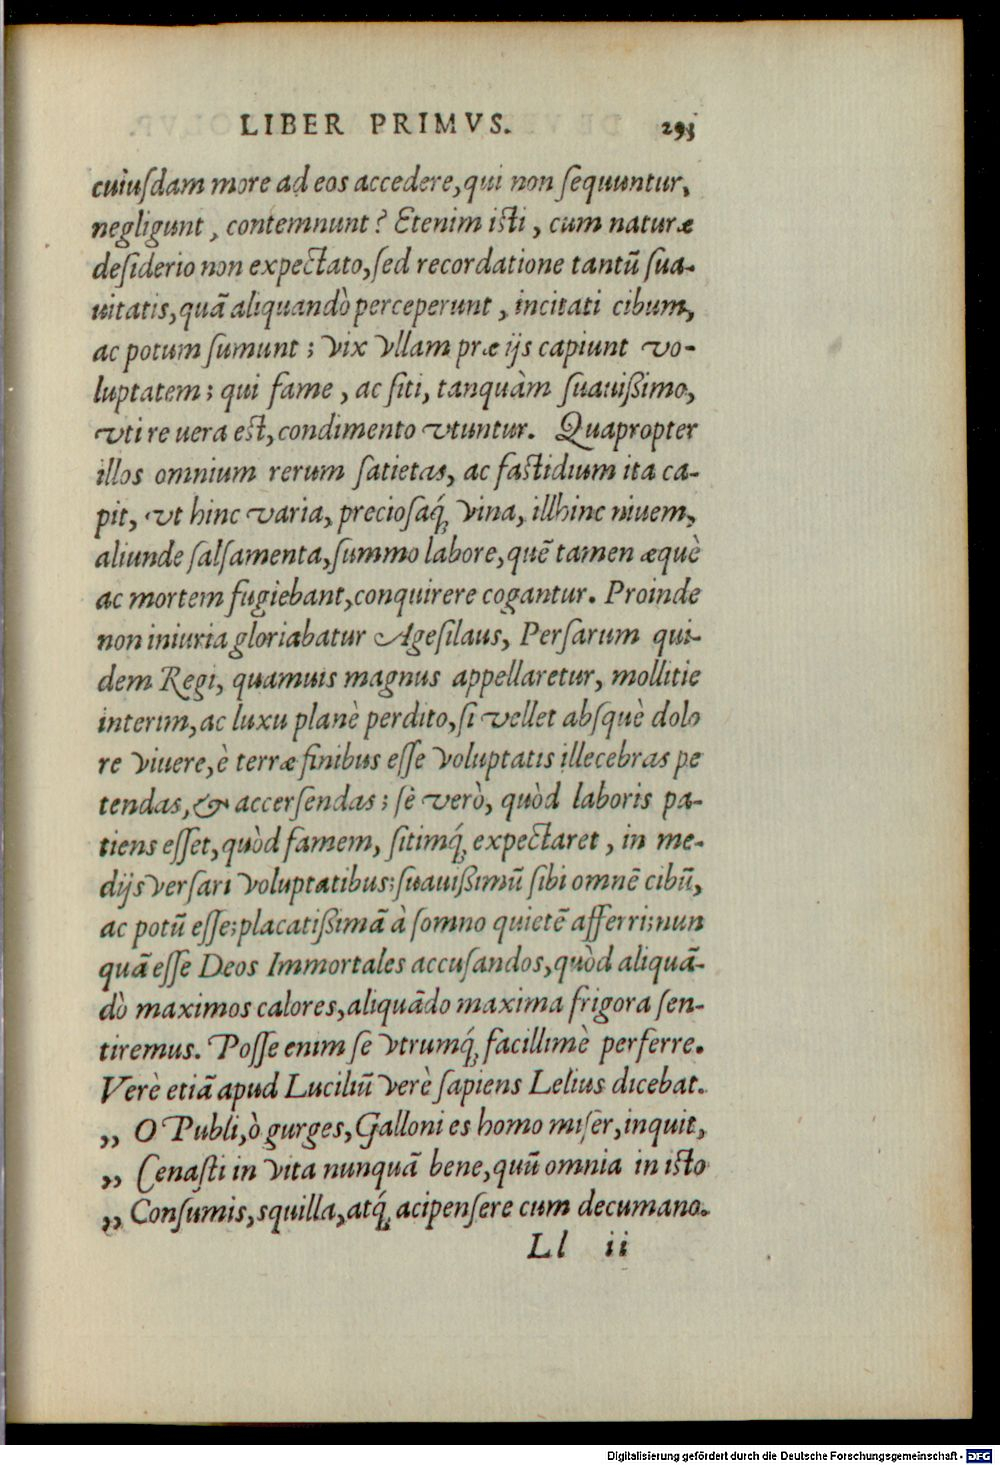 LIBER PRIMVS. 293
cuiusdam more ad eos accedere, qui non sequuntur,
negligunt, contemnunt? Etenim isti, cum naturæ
desiderio non expectato, sed recordatione tantũ sua-
uitatis, quã aliquandò perceperunt, incitati cibum,
ac potum sumunt; vix vllam præ ijs capiunt vo-
luptatem; qui fame, ac siti, tanquàm suauißimo,
vti re uera est, condimento vtuntur. Quapropter
illos omnium rerum satietas, ac fastidium ita ca-
pit, vt hinc varia, preciosaq́; vina, illhinc niuem,
aliunde salsamenta, summo labore, quẽ tamen æquè
ac mortem fugiebant, conquirere cogantur. Proinde
non iniuria gloriabatur Agesilaus, Persarum qui-
dem Regi, quamuis magnus appellaretur, mollitie
interim, ac luxu planè perdito, si vellet absquè dolo
re viuere, è terræ finibus esse voluptatis illecebras pe
tendas, & accersendas; sè verò, quòd laboris pa-
tiens esset, quòd famem, sitimq́; expectaret, in me-
dijs versari voluptatibus; suauißimũ sibi omnẽ cibũ,
ac potũ esse; placatißimã à somno quietẽ afferri; nun
quã esse Deos Immortales accusandos, quòd aliquã-
dò maximos calores, aliquãdo maxima frigora sen-
tiremus. Posse enim se vtrumq́; facillimè perferre.
Verè etiã apud Luciliũ verè sapiens Lelius dicebat.
„ O Publi, ò gurges, Galloni es homo miser, inquit,
„ Cenasti in vita nunquã bene, quũ omnia in isto
„ Consumis, squilla, atq́; acipensere cum decumano.
Ll ii
Digitalisierung gefördert durch die Deutsche Forschungsgemeinschaft - DFG